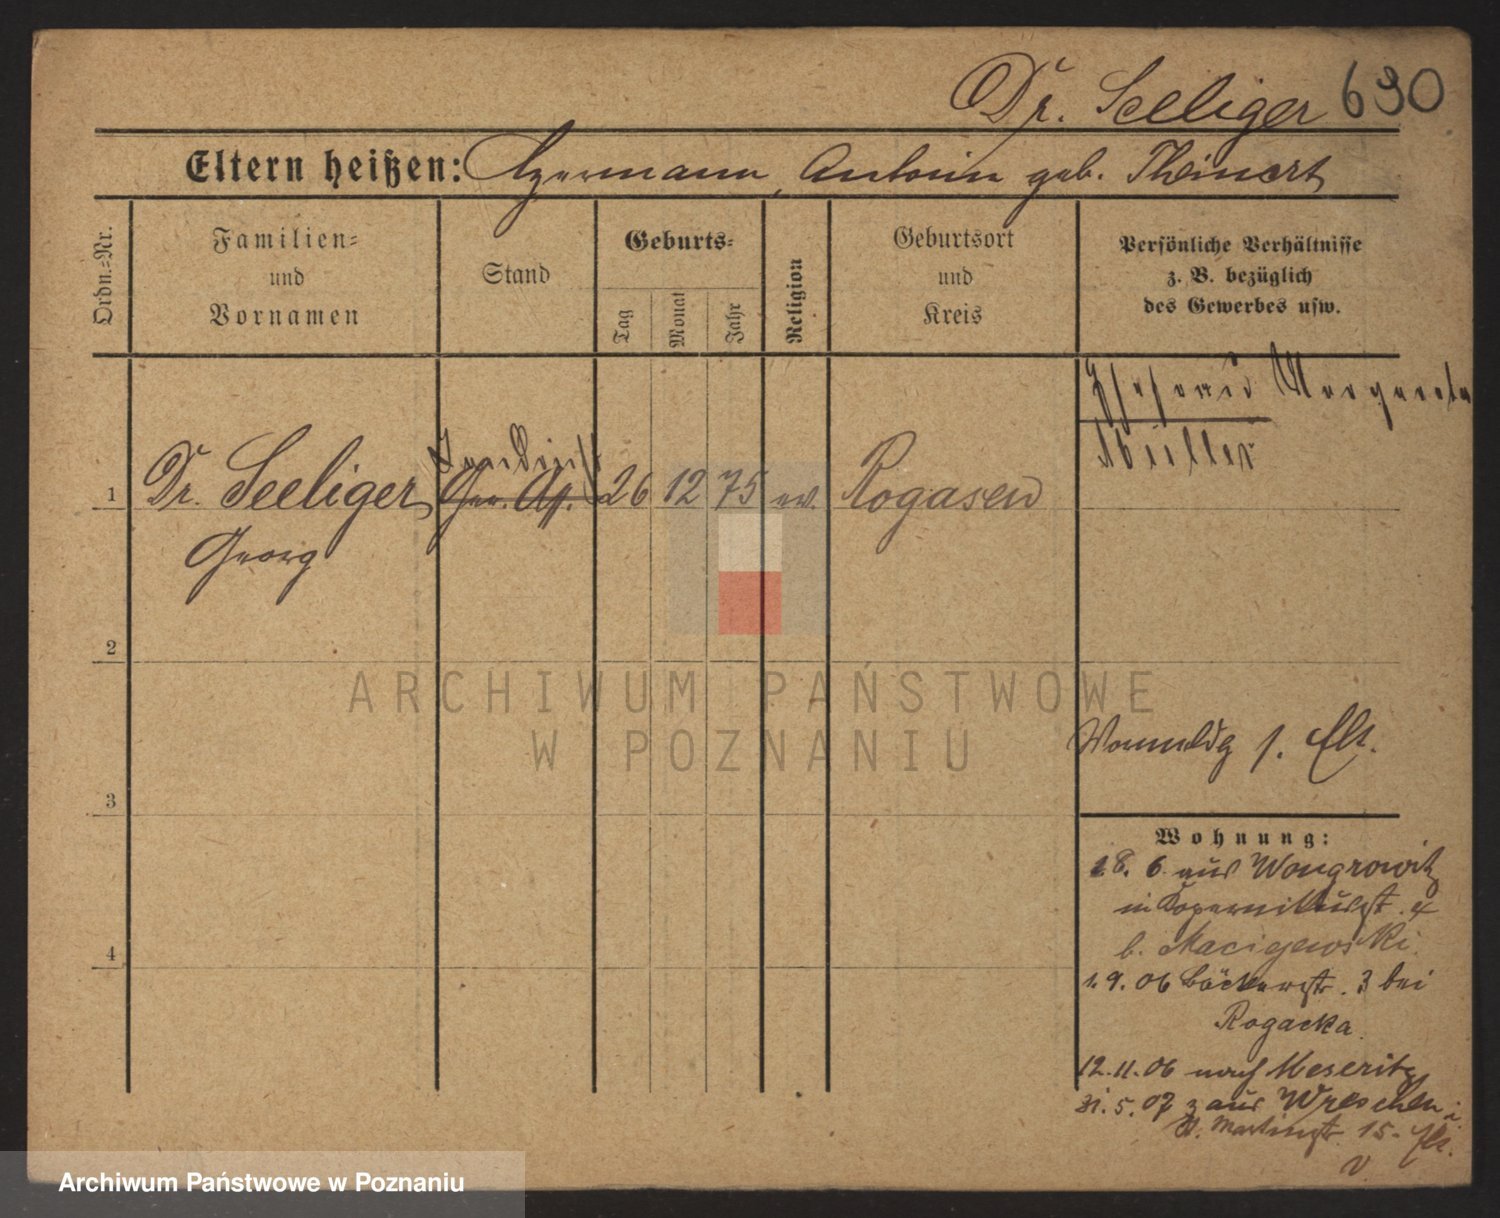 Dr. Seeliger 690
Eltern heißen: Hermann, Antonie geb. Theinert
Ordn.=Nr.
Familien=
und
Vornamen
Stand
Geburts=
Tag
Monat
Jahr
Religion
Geburtsort
und
Kreis
Persönliche Verhältnisse
z. B. bezüglich
des Gewerbes usw.
Ehefrau Margarete
Müller
1 Dr. Seeliger 26 12 75 ev. Rogasen
Georg
2
3
4
Wohnung:
18. 6. aus Wongrowitz
in Kopernikusst. 4
b. Maciejewski
1. 9. 06 Bäckerstr. 3 bei
Rogacka.
12. 11. 06 nach Meseritz
31. 5. 07 z aus Wreschen
St. Martinstr. 15.
ARCHIWUM PAŃSTWOWE
W POZNANIU
Archiwum Państwowe w Poznaniu